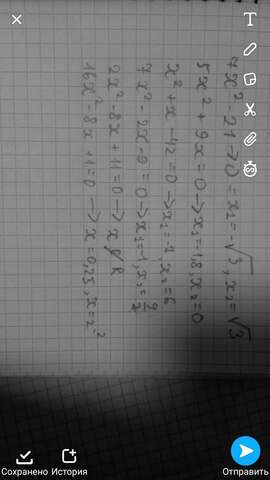 7x²-21=0 → x₁=-√3, x₂=√3
5x²+9x=0 → x₁=1,8, x₂=0
x²+x-42=0 → x₁=-7, x₂=6
7x²-2x-9=0 → x₁=-1, x₂=9/7
2x²-8x+11=0 → x∉R
16x²-8x+1=0 → x=0,25, x=2⁻²
Сохранено
История
Отправить